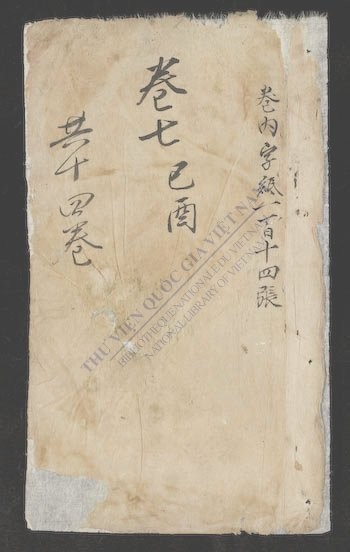 卷内字紙一百十四張
卷七 己酉
共十四卷
THƯ VIỆN QUỐC GIA VIỆT NAM
BIBLIOTHEQUE NATIONALE DU VIETNAM
NATIONAL LIBRARY OF VIETNAM